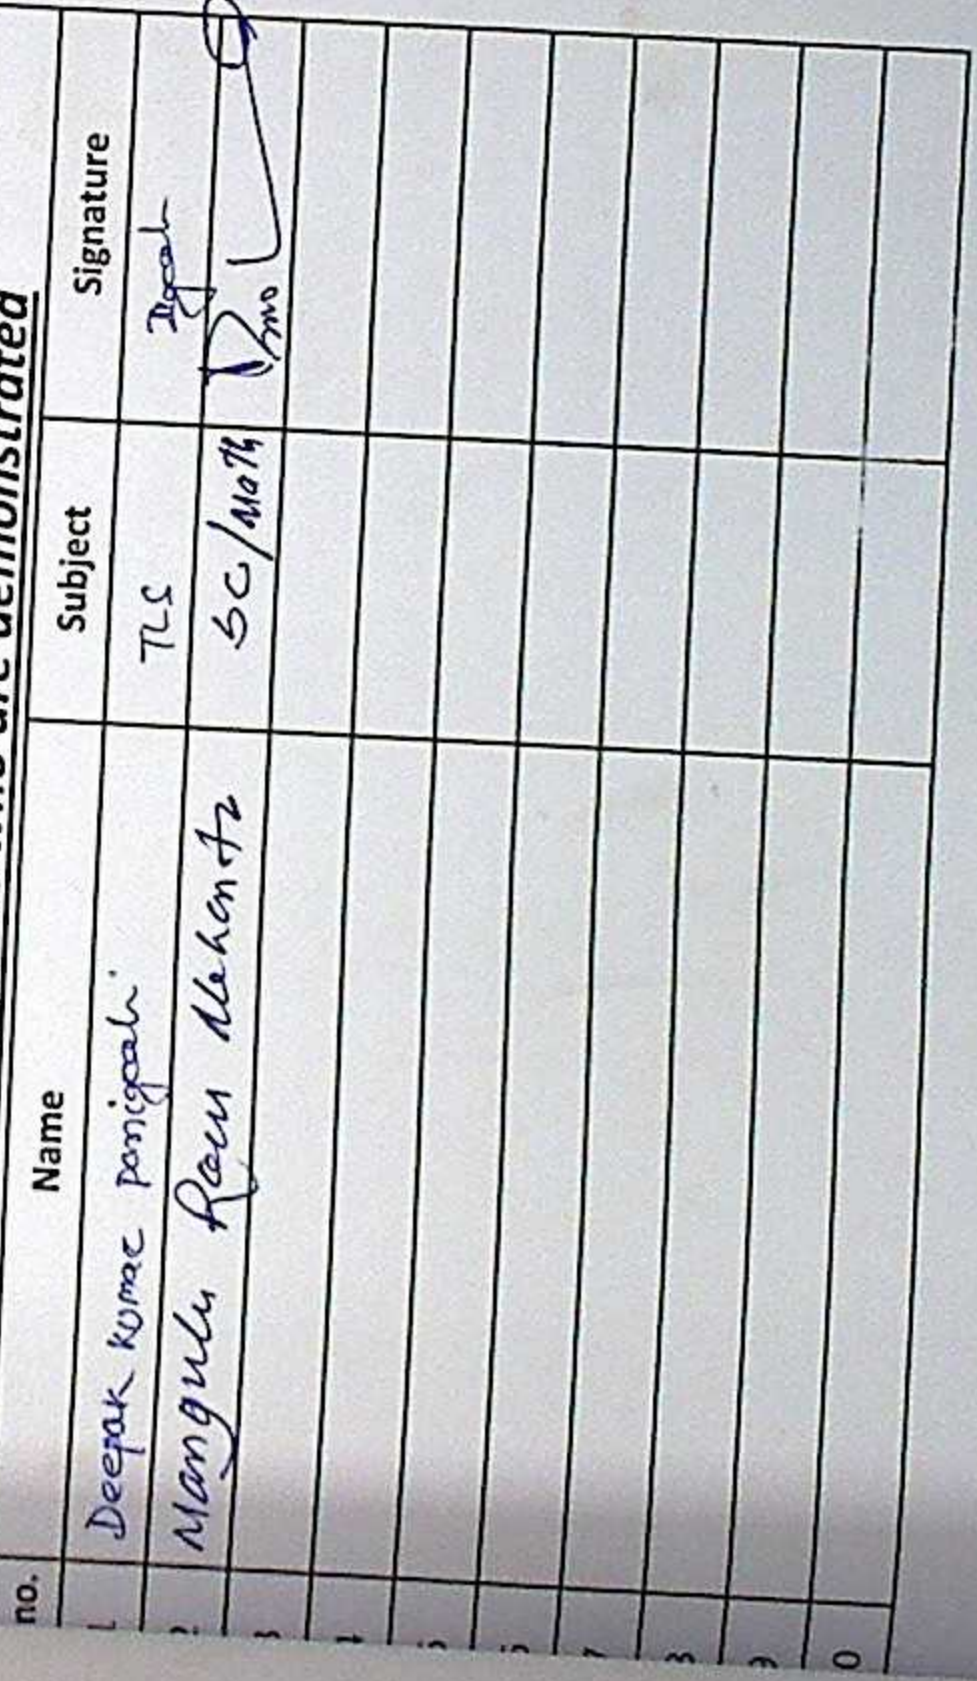 are demonstrated
no. Name Subject Signature
1 Deepak kumar panigrahi TLS
2 Mangulu Ram Mahanta SC/Math
3
4
5
6
7
8
9
0